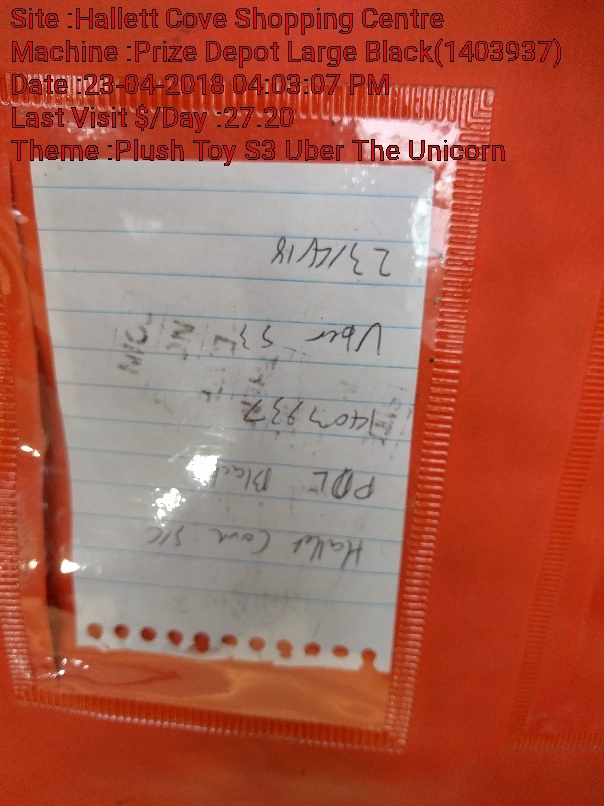 Site :Hallett Cove Shopping Centre
Machine :Prize Depot Large Black(1403937)
Date :23-04-2018 04:03:07 PM
Last Visit $/Day :27.20
Theme :Plush Toy S3 Uber The Unicorn
Hallet Cove S/C
PDL Black
1403937
Uber S3
23/4/18